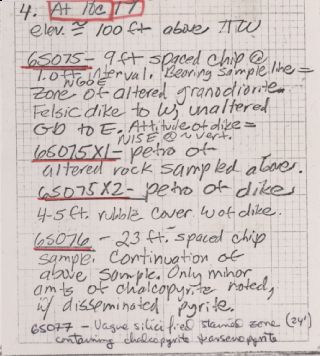 4. At loc 17
elev. ≅ 100 ft above TW
65075 - 9 ft spaced chip @
1.0 ft interval. Bearing sample line =
N60E
zone of altered granodiorite.
Felsic dike to W, unaltered
GD to E. Attitude of dike =
N15E @ ~ vert.
65075X1 - petro of
altered rock sampled above.
65075X2 - petro of dike
4-5 ft. rubble cover W of dike.
65076 - 23 ft. spaced chip
sample. Continuation of
above sample. Only minor
amts of chalcopyrite noted,
w/ disseminated pyrite.
65077 - Vague silicified stained zone (24')
containing chalcopyrite